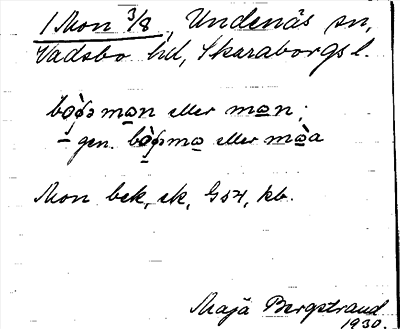 1 Mon 3/8, Undenäs sn,
Vadsbo hd, Skaraborgs l.
mo̲n eller mo̲n;
– gen. eller mò̲a
Mon bek, ek, Gs4, kb.
Maja Bergstrand
1930.